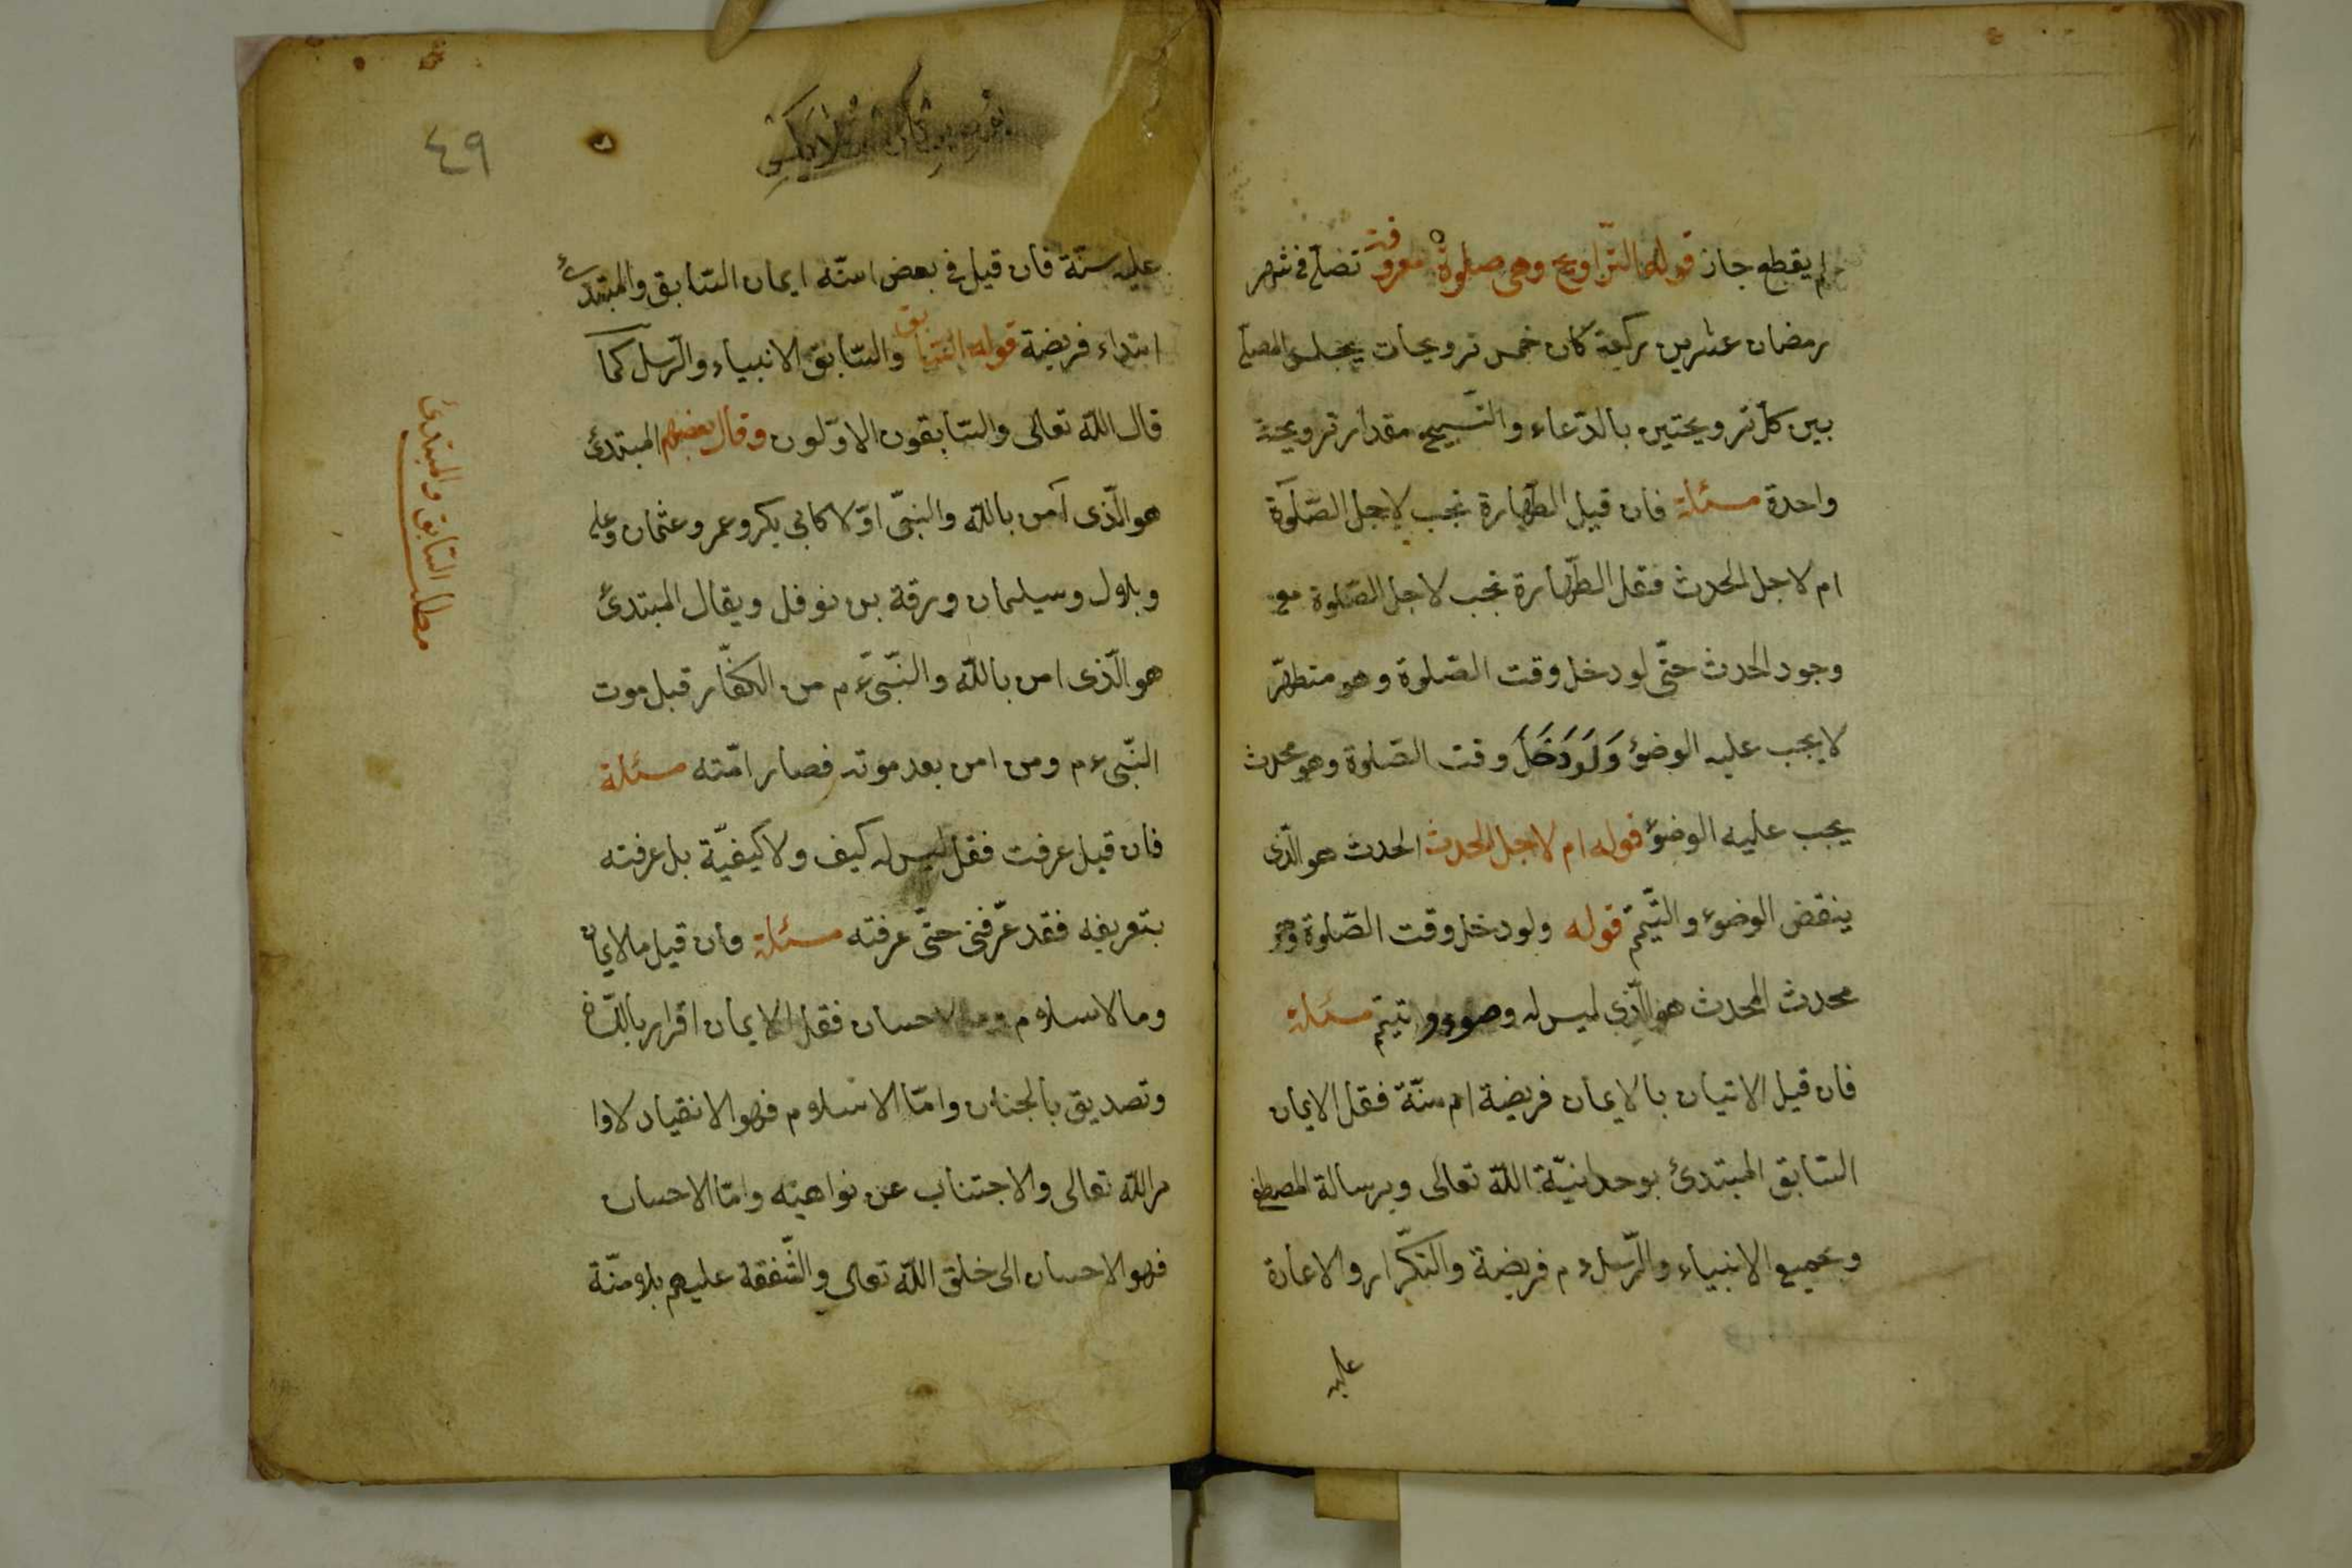 لم يقطع جاز قوله التّراويح وهى صلوة معروفة تصلّى فى شهر
رمضان عشرين ركعة كان خمس ترويحات يجلس المصلّى
بين كلّ ترويحتين بالدّعاء والتّسبيح مقدار ترويحة
واحدة مسئلة فان قيل الطّهارة تجب لاجل الصّلوة
ام لاجل الحدث فقل الطّهارة تجب لاجل الصّلوة مع
وجود الحدث حتّى لو دخل وقت الصّلوة وهو متطهّر
لا يجب عليه الوضوء وَلَوْ دَخَلَ وقت الصّلوة وهو محدث
يجب عليه الوضوء قوله ام لاجل الحدث الحدث هو الّذى
ينقض الوضوء والتّيمّم قوله ولو دخل وقت الصّلوة وهو
محدث المحدث هو الّذى ليس له وضوء وتيمّم مسئلة
فان قيل الاتيان بالايمان فريضة ام سنّة فقل الايمان
السّابق المبتدئ بوحدانيّة الله تعالى وبرسالة المصطفى
وبجميع الانبياء والرّسل ء م فريضة والتكرّار والاعادة
عليه
٤٩
عليه سنّة فان قيل فى بعض اسنّه ايمان السّابق والمبتدئ
ابتداء فريضة قوله السّابق والسّابق الانبياء والرّسل كما
قال الله تعالى والسّابقون الاوّلون وقال بعضهم المبتدئ
هو الّذى آمن بالله والنبىّ اوّلا كابى بكر وعمر وعثمان وعلى
وبلال وسيلمان ورقة بن نوفل ويقال المبتدئ
هو الّذى امن بالله والنّبىّ ء م من الكفّار قبل موت
النّبى ء م ومن امن بعد موته فصار امّته مسئلة
فان قيل عرفت فقل ليس له كيف ولا كيفيّة بل عرفته
بتعريفه فقد عرّفنى حتّى عرفته مسئلة فان قيل ما الايمان
وما الاسلام وما الاحسان فقل الايمان اقرار باللّسان
وتصديق بالجنان وامّا الاسلام فهو الانقياد لاوا
مر الله تعالى والاجتناب عن نواهيه وامّا الاحسان
فهو الاحسان الى خلق الله تعالى والشّفقة عليهم بلا منّة
مطلب السّابق والمبتدئ